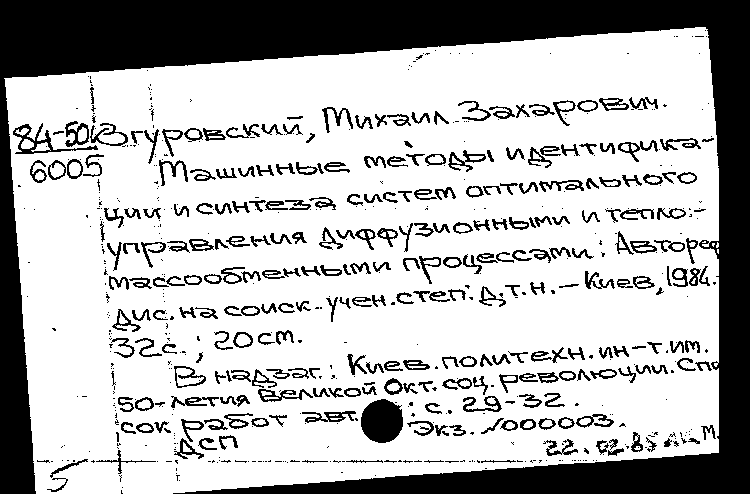 84-50к Згуровский, Михаил Захарович.
6005
Машинные методы идентифика-
ции и синтеза систем оптимального
управления диффузионными и тепло-
массообменными процессами: Автореф
дис. на соиск. учен. степ. д.т.н. — Киев, 1984.
32с.; 20см.
В надзаг.: Киев. политехн. ин-т. им.
50-летия Великой Окт. соц. революции. Спи
сок работ авт.: с. 29-32.
Экз. №000003.
ДСП
22.02.85 М.
5